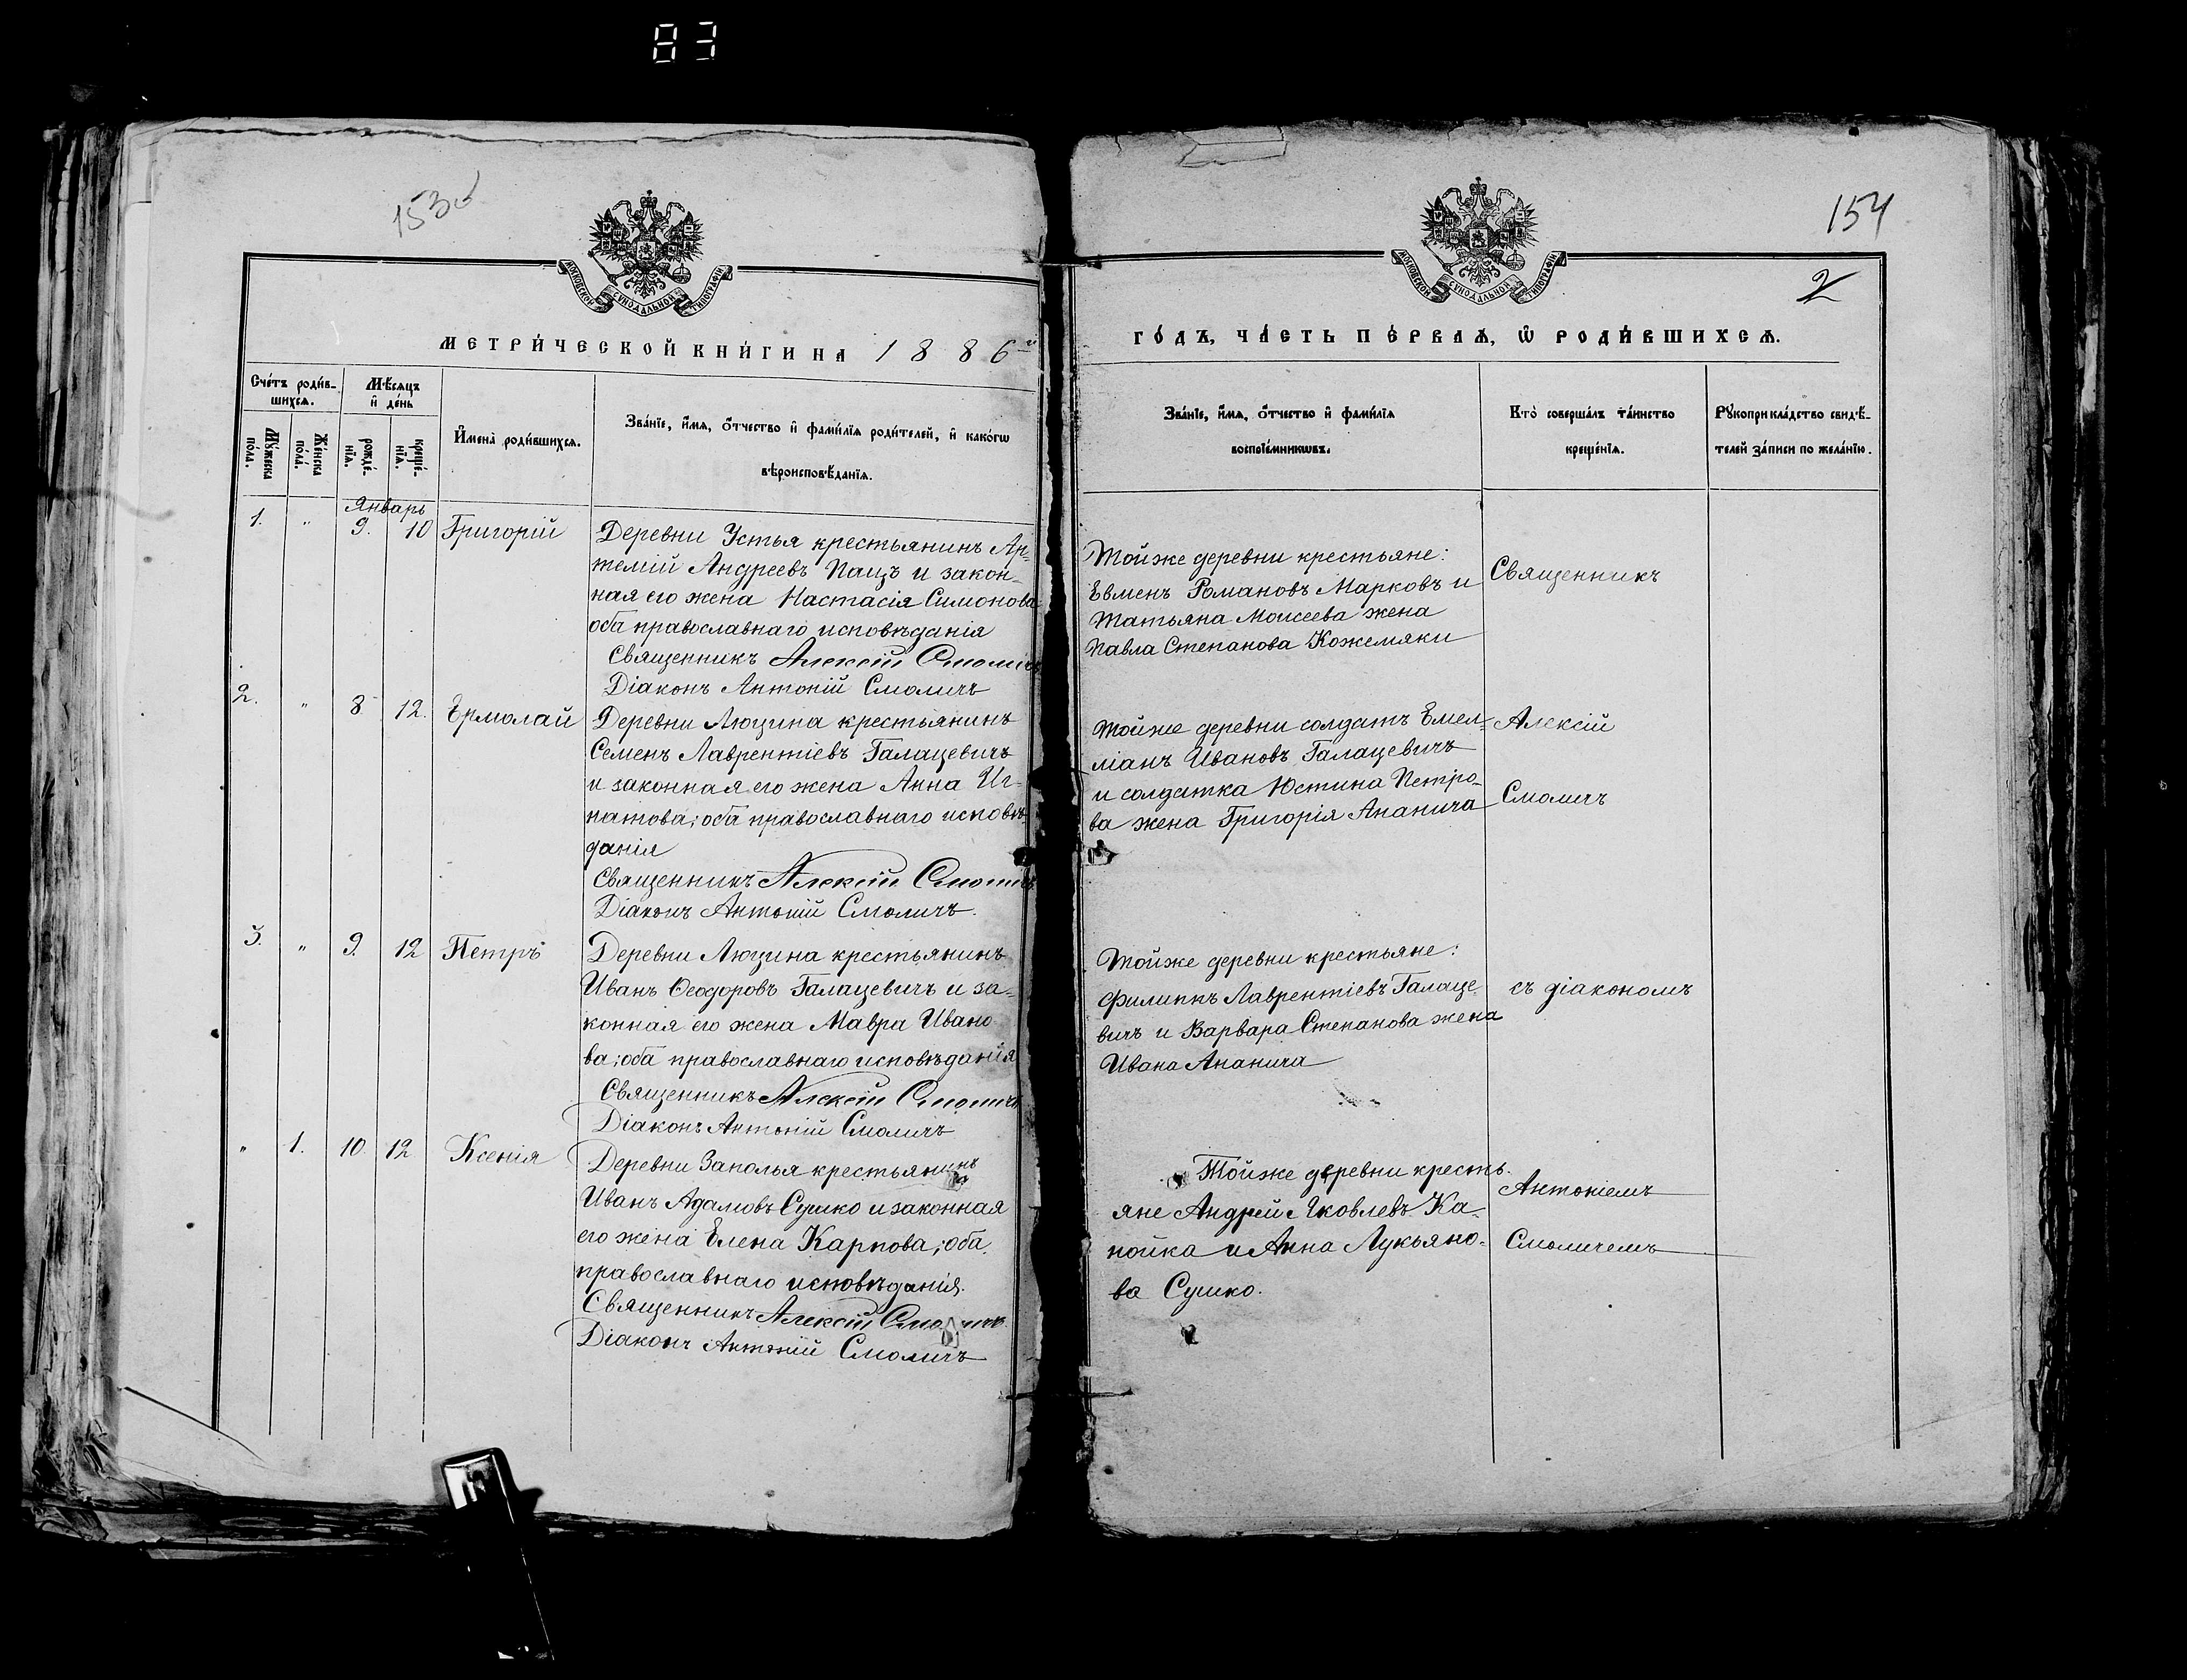 83
153
МОСКОВСКОЙ СѴНОДАЛЬНОЙ ТИПОГРАФІИ
МЕТРИ́ЧЕСКОЙ КНИ́ГИ НА 1886й
Сче́тъ роди́в-
шихсѧ.
Мѣ́сѧцъ
и҆ де́нь
Мꙋ́жеска
по́ла.
Же́нска
пола̀.
рожде́-
нїѧ.
креще́-
нїѧ.
И҆мена̀ роди́вшихсѧ.
Зва́нїе, и҆́мѧ, ѻ҆́тчество и҆ фами́лїѧ роди́телей, и҆ како́гѡ
вѣроисповѣ́данїѧ.
Январь
1. " 9. 10 Григорій
Деревни Устья крестьянинъ Ар-
темій Андреевъ Пацъ и закон-
ная его жена Настасія Симонова
оба православнаго исповѣданія
Священникъ Алексій Смоличъ
Діаконъ Антоній Смоличъ
2. " 8 12. Ермолай
Деревни Люцина крестьянинъ
Семенъ Лаврентіевъ Галацевичъ
и законная его жена Анна Иг-
натова; оба православнаго исповѣ-
данія
Священникъ Алексій Смоличъ
Діаконъ Антоній Смоличъ.
3. " 9. 12 Петръ
Деревни Люцина крестьянинъ
Иванъ Ѳеодоровъ Галацевичъ и за-
конная его жена Мавра Ивано-
ва; оба православнаго исповѣданія
Священникъ Алексій Смоличъ
Діаконъ Антоній Смоличъ
" 1. 10. 12 Ксенія
Деревни Заполья крестьянинъ
Иванъ Адамовъ Сушко и законная
его жена Елена Карпова; оба
православнаго исповѣданія.
Священникъ Алексій Смоличъ
Діаконъ Антоній Смоличъ
154
2
МОСКОВСКОЙ СѴНОДАЛЬНОЙ ТИПОГРАФІИ
ГО́ДЪ, ЧА́СТЬ ПЕ́РВАѦ, Ѡ҆ РОДИ́ВШИХСѦ.
Зва́нїе, и҆́мѧ, ѻ҆́тчество и҆ фами́лїѧ
воспрїе́мникѡвъ.
Кто̀ соверша́лъ та́инство
креще́нїѧ.
Рꙋкоприкла́дство свидѣ́-
телей за́писи по жела́нїю.
Тойже деревни крестьяне:
Евменъ Романовъ Марковъ и
Татьяна Моисеева жена
Павла Степанова Кожемяки
Священникъ
Тойже деревни солдатъ Емел-
ліанъ Ивановъ Галацевичъ
и солдатка Юстина Петро-
ва жена Григорія Ананича
Алексій
Смоличъ
Тойже деревни крестьяне:
Филиппъ Лаврентіевъ Галаце-
вичъ и Варвара Степанова жена
Ивана Ананича
съ діакономъ
Тойже деревни кресть-
яне Андрей Яковлевъ Ка-
нойка и Анна Лукьяно-
ва Сушко.
Антоніемъ
Смоличемъ